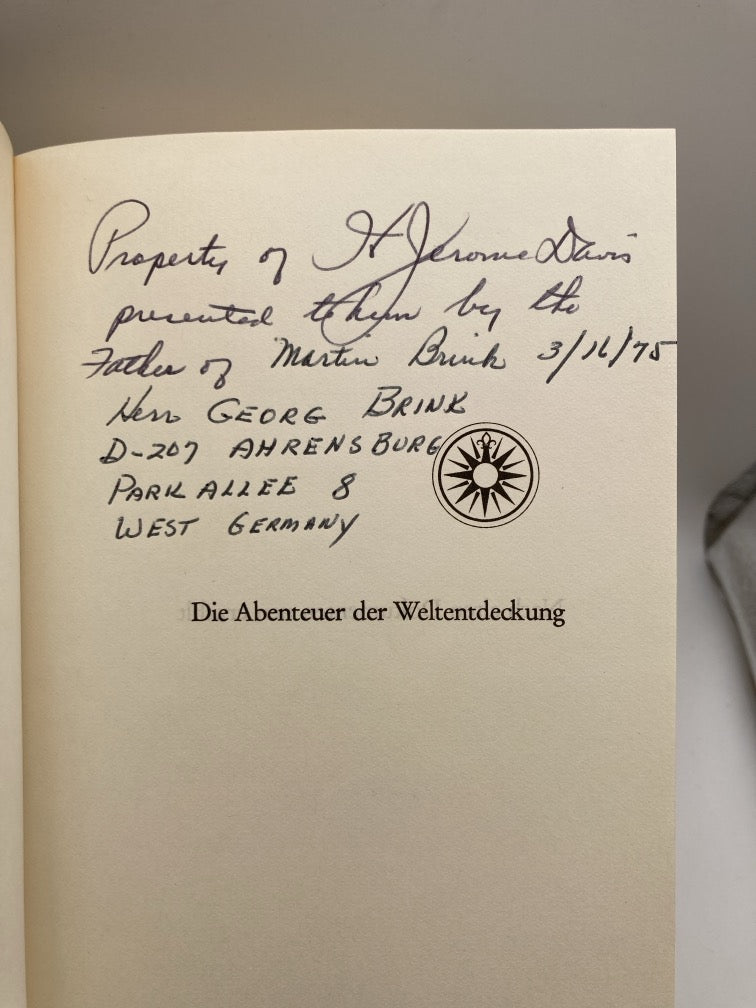 Property of H Jerome Davis
presented to him by the
Father of Martin Brink 3/16/75
Herr GEORG BRINK
D-207 AHRENSBURG
PARK ALLEE 8
WEST GERMANY
Die Abenteuer der Weltentdeckung